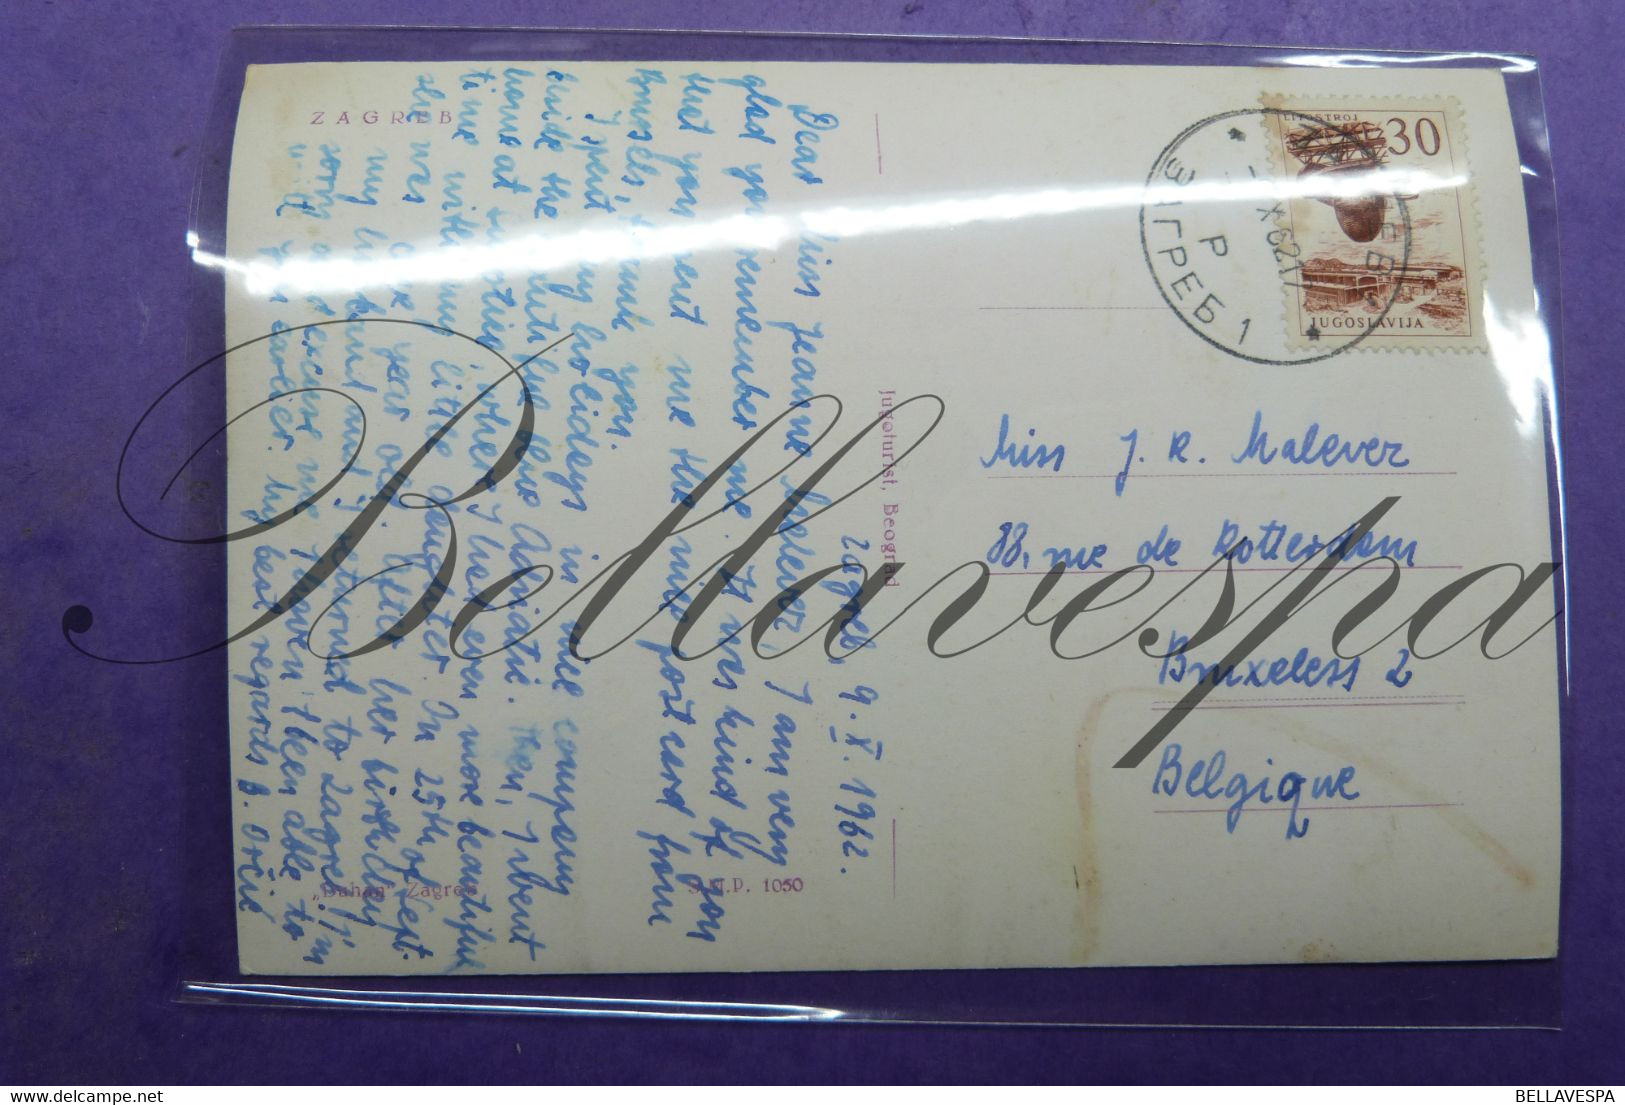 ZAGREB
Zagreb, 9. X. 1962.
Dear Miss Jeanne Malever,
I am very
glad you remember me. It was kind of you
that you sent me the nice post card from
Brussels, thank you.
I spent my holidays in nice company
beside the beautiful blue Adriatic. Then, I spent
home at vacation, when I had even more beautiful
time with my little daughter. On 25th of Sept.
she was one year old. After her birthday
my husband and I returned to Zagreb. I'm
sorry and excuse me I haven't been able to
write you sooner. My best regards B. Oršić
"Duhan" Zagreb
S.N.P. 1050
Jugoturist, Beograd
LITOSTROJ
30
JUGOSLAVIJA
ZAGREB
ЗАГРЕБ 1
P
X 62 17
Miss J. R. Malever
88, rue de Rotterdam
Bruxelles 2
Belgique
Bellavespa
BELLAVESPA